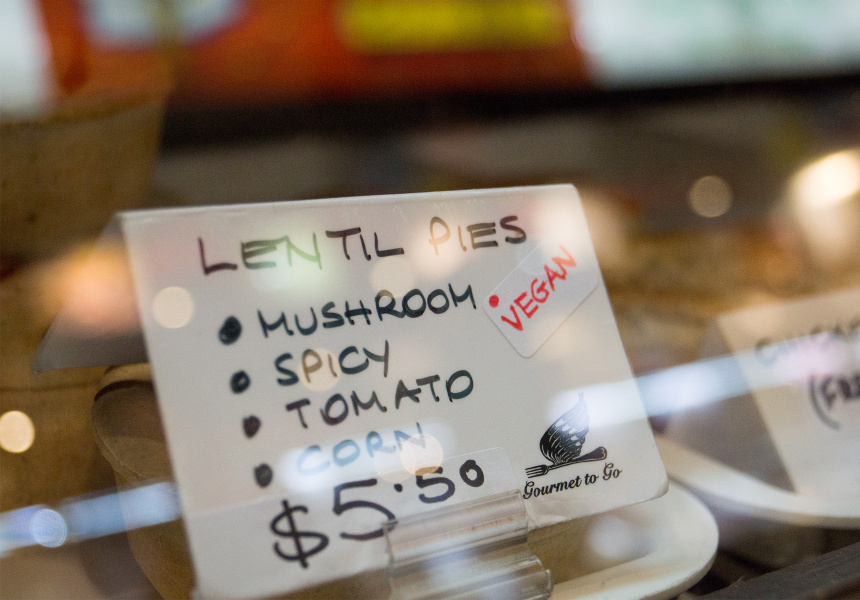 LENTIL PIES
• MUSHROOM
• VEGAN
• SPICY
• TOMATO
• CORN
$5.50
Gourmet to Go